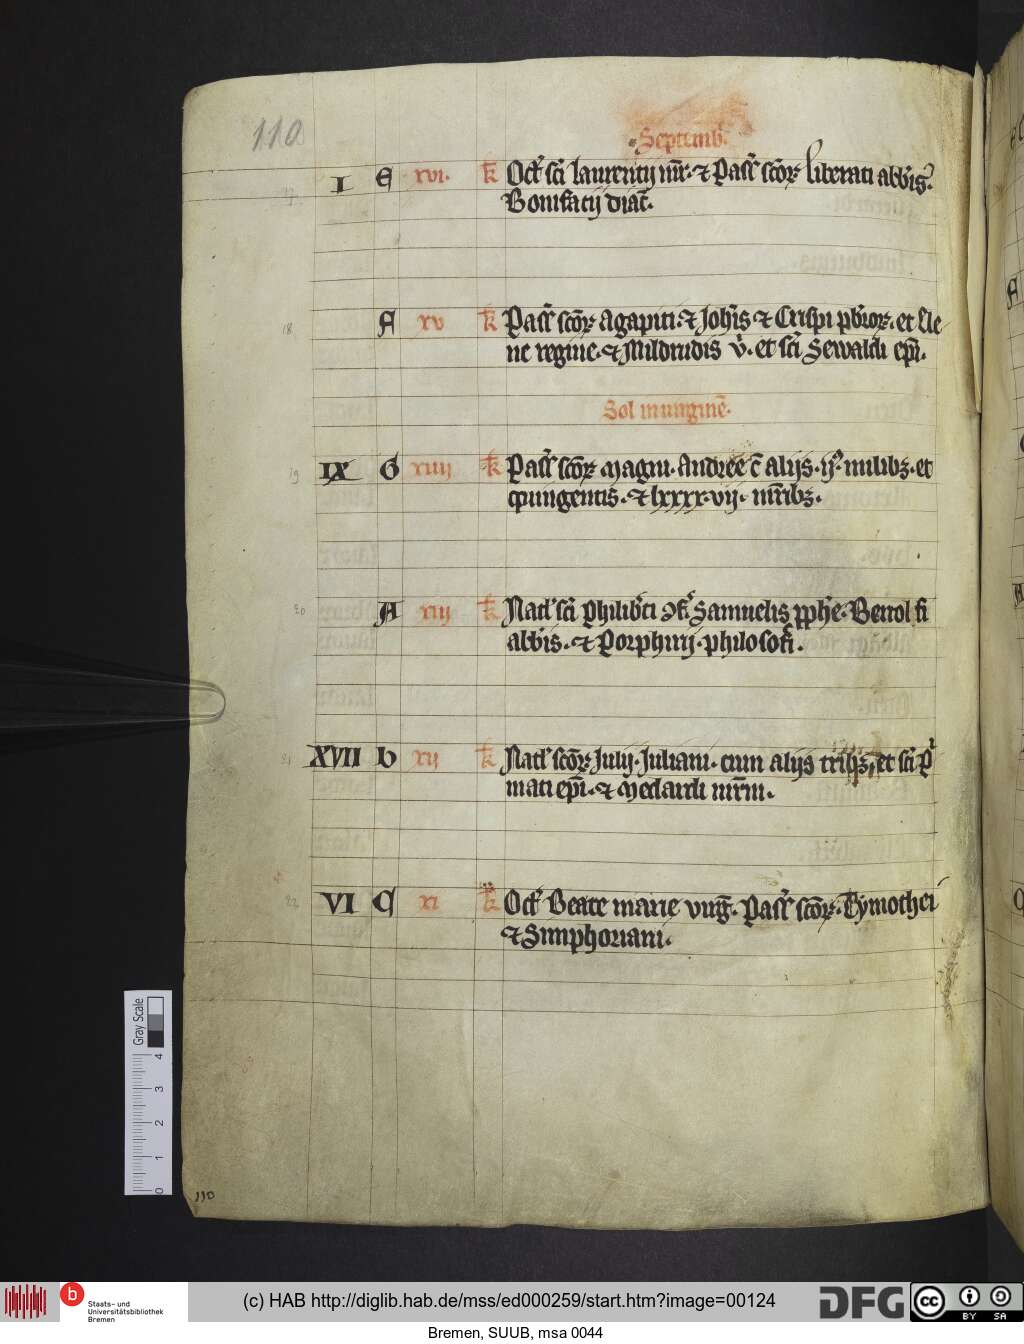 110
Septemb.
17 I E xvi. k̄ Oct' sc̄i laurentij mr̄. ⁊ Pass' sc̄oꝝ liberati abb̄is.
Bonifacij diac̄.
18 F xv k̄ Pass' sc̄oꝝ Agapiti. ⁊ Joh̄is ⁊ Crispi pb̄roꝝ. et Ele
ne regine. ⁊ Mildrudis v̄. et sc̄i Sewaldi ep̄i.
Sol in uirgine.
19 IX G xiiij k̄ Pass' sc̄oꝝ Magni. Andree c̄ Alijs. ij. milibꝫ. et
quingentis. ⁊ lxxxx.vij. mr̄ibꝫ.
20 A xiij k̄ Natl' sc̄i Philib'ti ꝯf. Samuelis pph̄e. Berrolfi
abb̄is. ⁊ Porphirij. philosofi.
21 XVII b xij k̄ Natl' sc̄oꝝ Julij. Juliani. cum alijs tribꝫ, et sc̄i P'
mati ep̄i. ⁊ Medardi mr̄m.
22 VI C xi k̄ Oct' Beate marie virḡ. Pass' sc̄oꝝ. Tymothei
⁊ Simphoriani.
110
Gray Scale
4
3
2
1
0
b
Staats- und
Universitätsbibliothek
Bremen
(c) HAB http://diglib.hab.de/mss/ed000259/start.htm?image=00124
DFG
cc BY SA
Bremen, SUUB, msa 0044